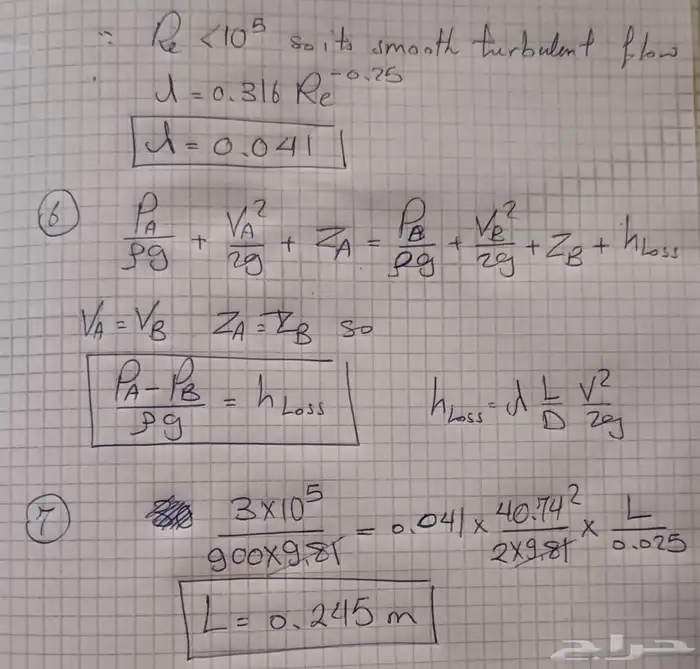 ∵ Re < 10⁵ so its smooth turbulent flow
λ = 0.316 Re⁻⁰·²⁵
λ = 0.041
⑥ P_A/ρg + V_A²/2g + Z_A = P_B/ρg + V_B²/2g + Z_B + h_Loss
V_A = V_B Z_A = Z_B so
(P_A - P_B)/ρg = h_Loss h_Loss = λ L/D V²/2g
⑦ 3×10⁵/(900×9.81) = 0.041 × 40.74²/(2×9.81) × L/0.025
L = 0.245 m
حراج